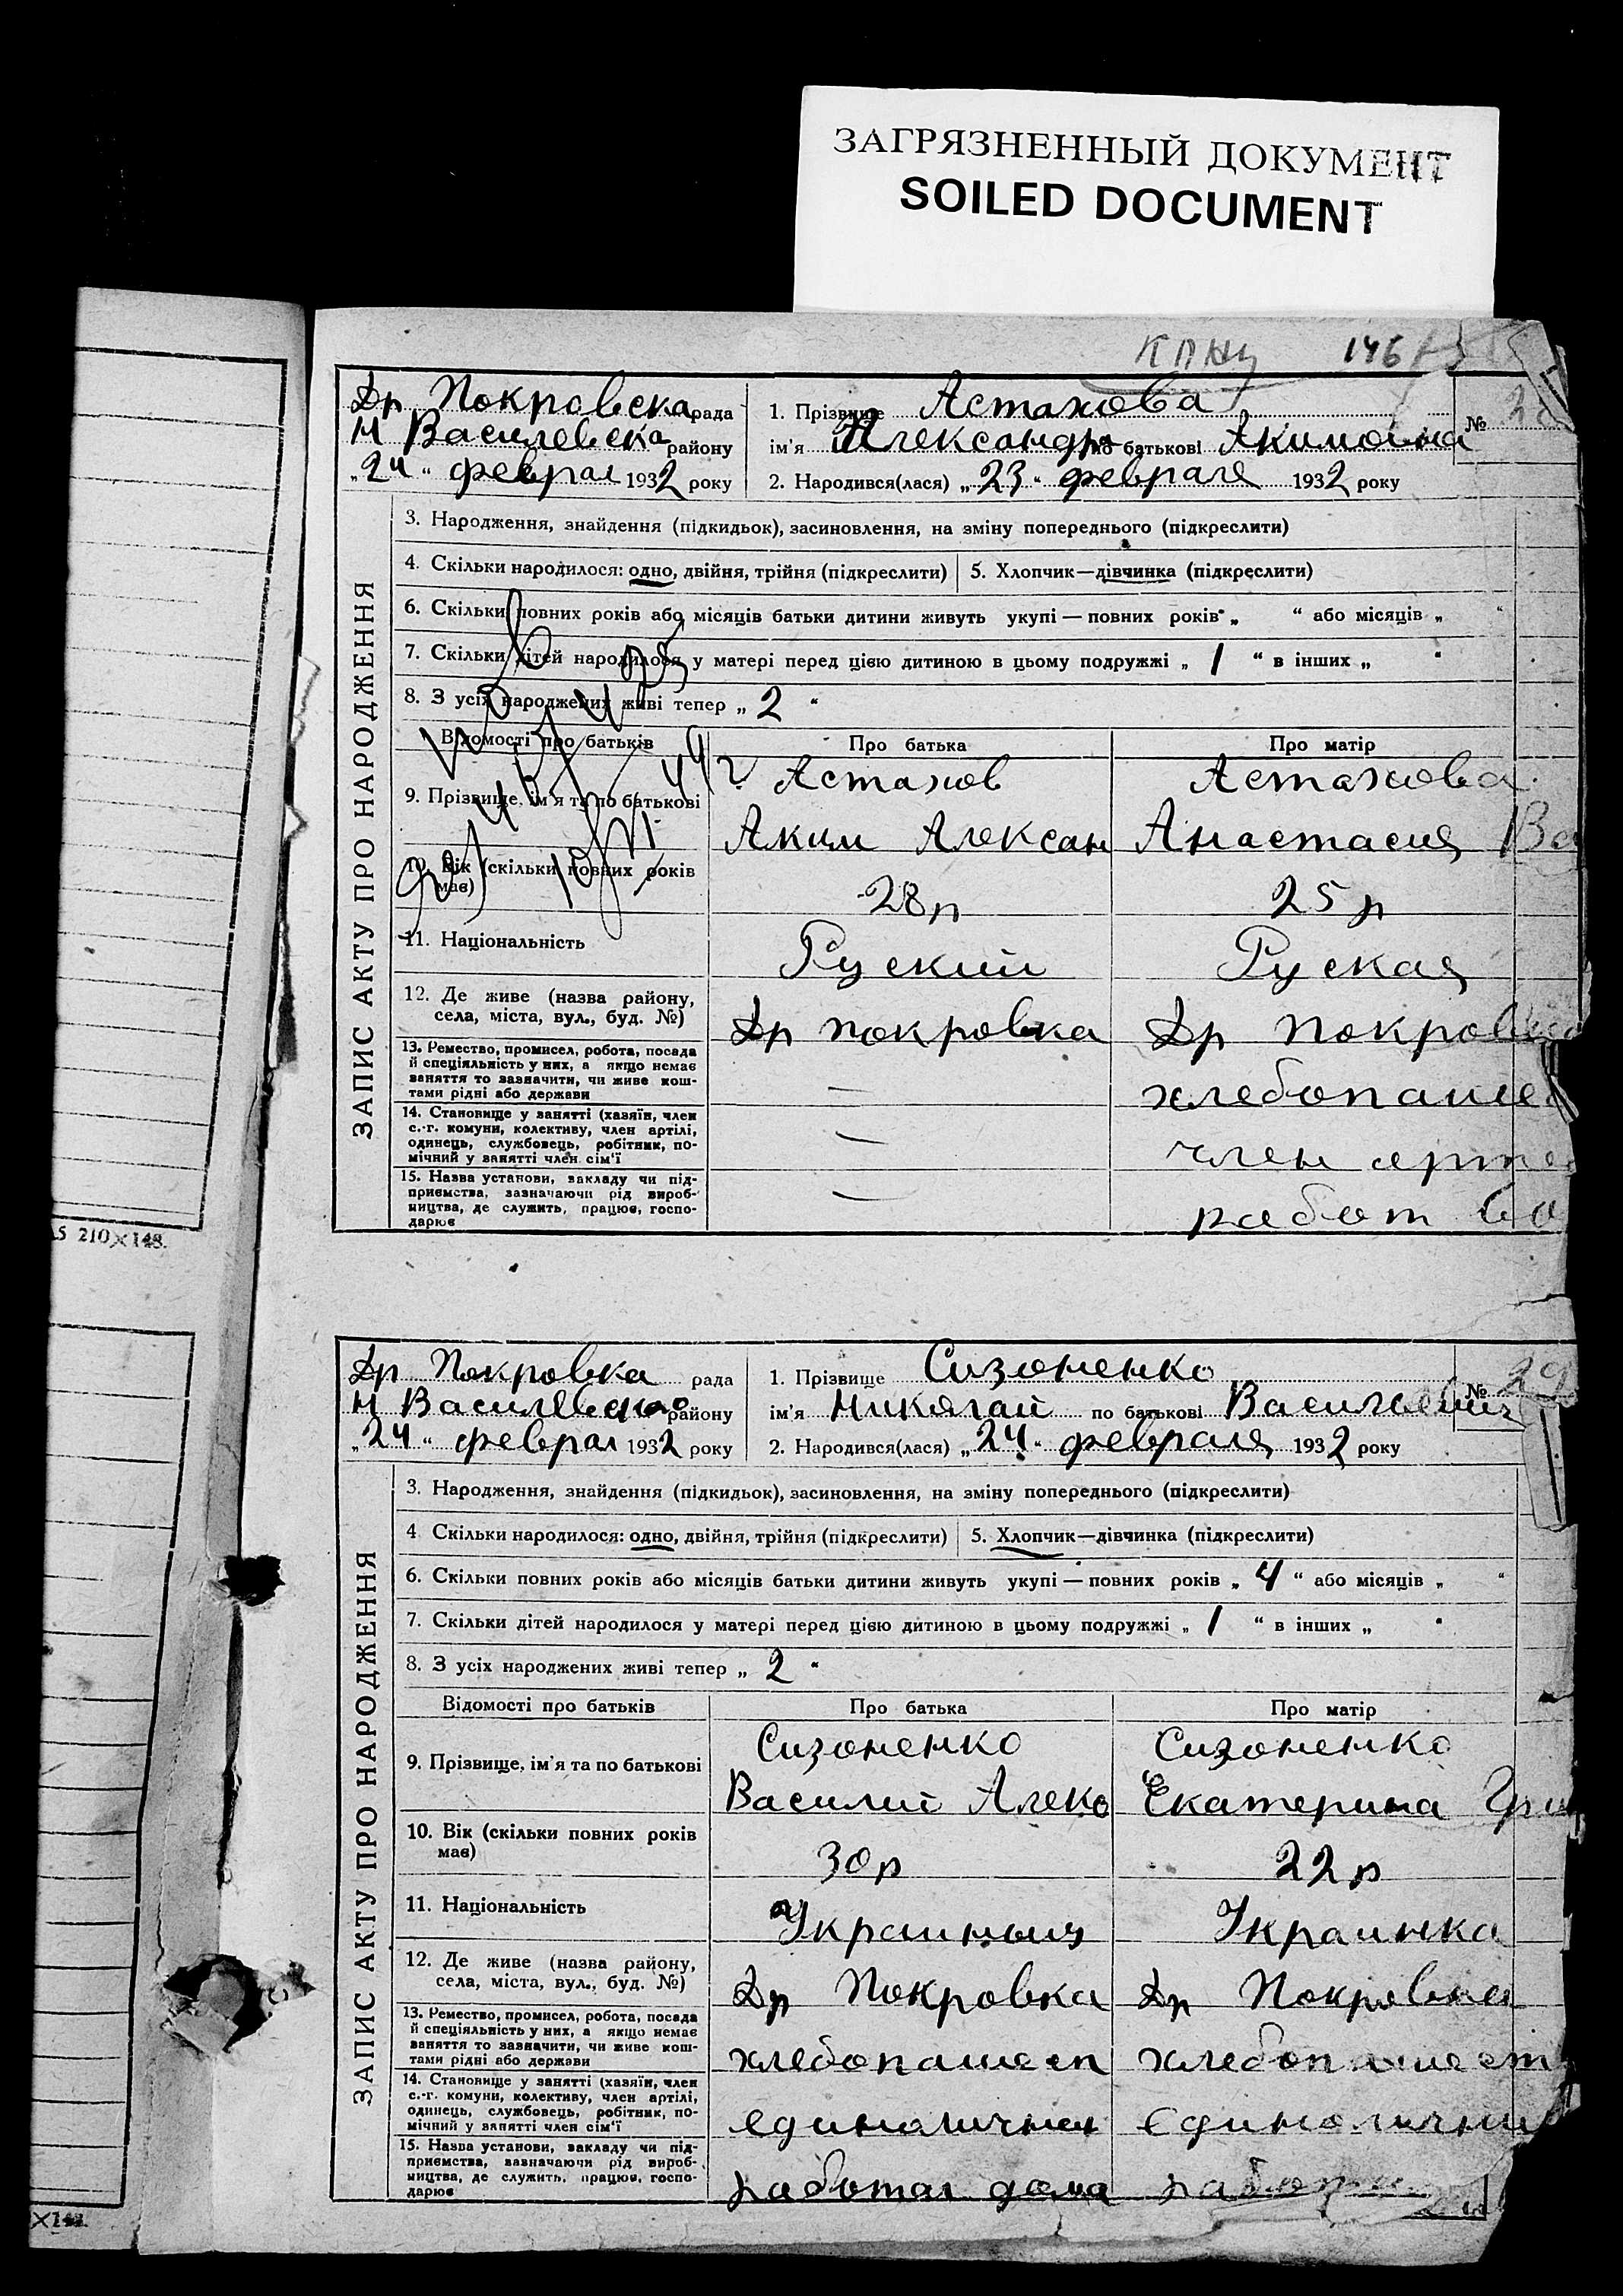 ЗАГРЯЗНЕННЫЙ ДОКУМЕНТ
SOILED DOCUMENT
146
Др Покровска рада
Н Василевска району
„24“ феврал 1932 року
1. Прізвище Астахова
ім'я Александра по батькові Акимовна
№
2. Народився(лася) „23“ февраля 1932 року
ЗАПИС АКТУ ПРО НАРОДЖЕННЯ
3. Народження, знайдення (підкидьок), засиновлення, на зміну попереднього (підкреслити)
4. Скільки народилося: одно, двійня, трійня (підкреслити) 5. Хлопчик—дівчинка (підкреслити)
6. Скільки повних років або місяців батьки дитини живуть укупі — повних років „ “ або місяців „ “
7. Скільки дітей народилося у матері перед цією дитиною в цьому подружжі „ 1 “ в інших „ “
8. З усіх народжених живі тепер „ 2 “
Відомості про батьків Про батька Про матір
9. Прізвище, ім'я та по батькові
Астахов Астахова
Аким Алексан Анастасия Ва
10. Вік (скільки повних років має) 28 р 25 р
11. Національність Руский Руская
12. Де живе (назва району,
села, міста, вул., буд. №) Др покровка Др Покровка
13. Ремество, промисел, робота, посада
й спеціяльність у них, а якщо немає
заняття то зазначити, чи живе кош-
тами рідні або держави — хлебопаше
14. Становище у занятті (хазяїн, член
с.-г. комуни, колективу, член артілі,
одинець, службовець, робітник, по-
мічний у занятті член сім'ї — член арте
15. Назва установи, закладу чи під-
приємства, зазначаючи рід вироб-
ництва, де служить, працює, госпо-
дарює — работ
А5 210×148.
Др Покровка рада
Н Василевско району
„24“ феврал 1932 року
1. Прізвище Сизоненко
ім'я Николай по батькові Васильевич
№ 29
2. Народився(лася) „24“ февраля 1932 року
ЗАПИС АКТУ ПРО НАРОДЖЕННЯ
3. Народження, знайдення (підкидьок), засиновлення, на зміну попереднього (підкреслити)
4. Скільки народилося: одно, двійня, трійня (підкреслити) 5. Хлопчик—дівчинка (підкреслити)
6. Скільки повних років або місяців батьки дитини живуть укупі — повних років „ 4 “ або місяців „ “
7. Скільки дітей народилося у матері перед цією дитиною в цьому подружжі „ 1 “ в інших „ “
8. З усіх народжених живі тепер „ 2 “
Відомості про батьків Про батька Про матір
9. Прізвище, ім'я та по батькові
Сизоненко Сизоненко
Василий Алекс Екатерина Гри
10. Вік (скільки повних років має) 30 р 22 р
11. Національність Украиныц Украинка
12. Де живе (назва району,
села, міста, вул., буд. №) Др Покровка Др Покровка
13. Ремество, промисел, робота, посада
й спеціяльність у них, а якщо немає
заняття то зазначити, чи живе кош-
тами рідні або держави хлебопашеп хлебопашест
14. Становище у занятті (хазяїн, член
с.-г. комуни, колективу, член артілі,
одинець, службовець, робітник, по-
мічний у занятті член сім'ї единоличнек единолични
15. Назва установи, закладу чи під-
приємства, зазначаючи рід вироб-
ництва, де служить, працює, госпо-
дарює работаг дома